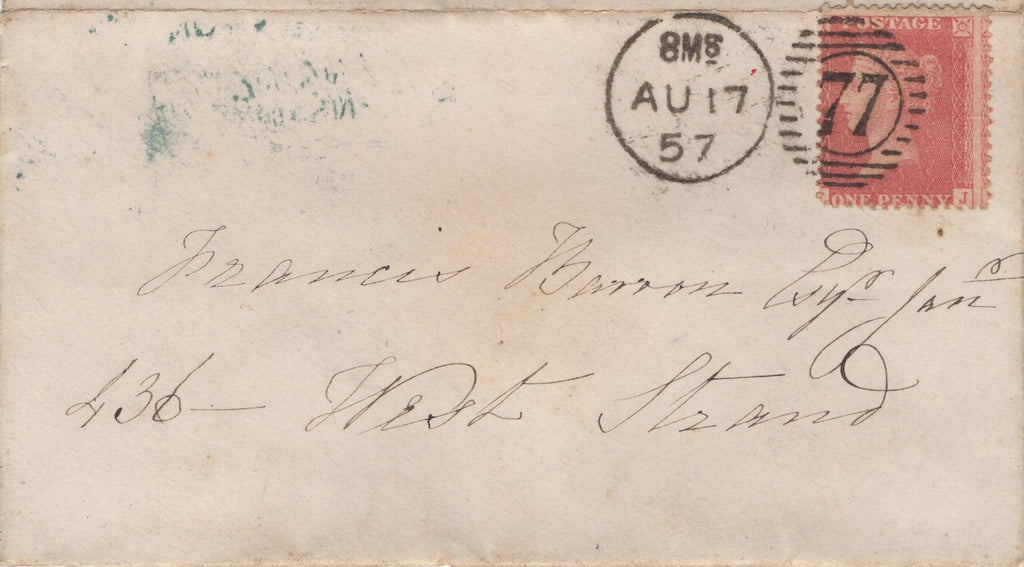 8M8
AU 17
57
77
POSTAGE
ONE PENNY J
Francis Barron Esqr Junr
436 – West Strand